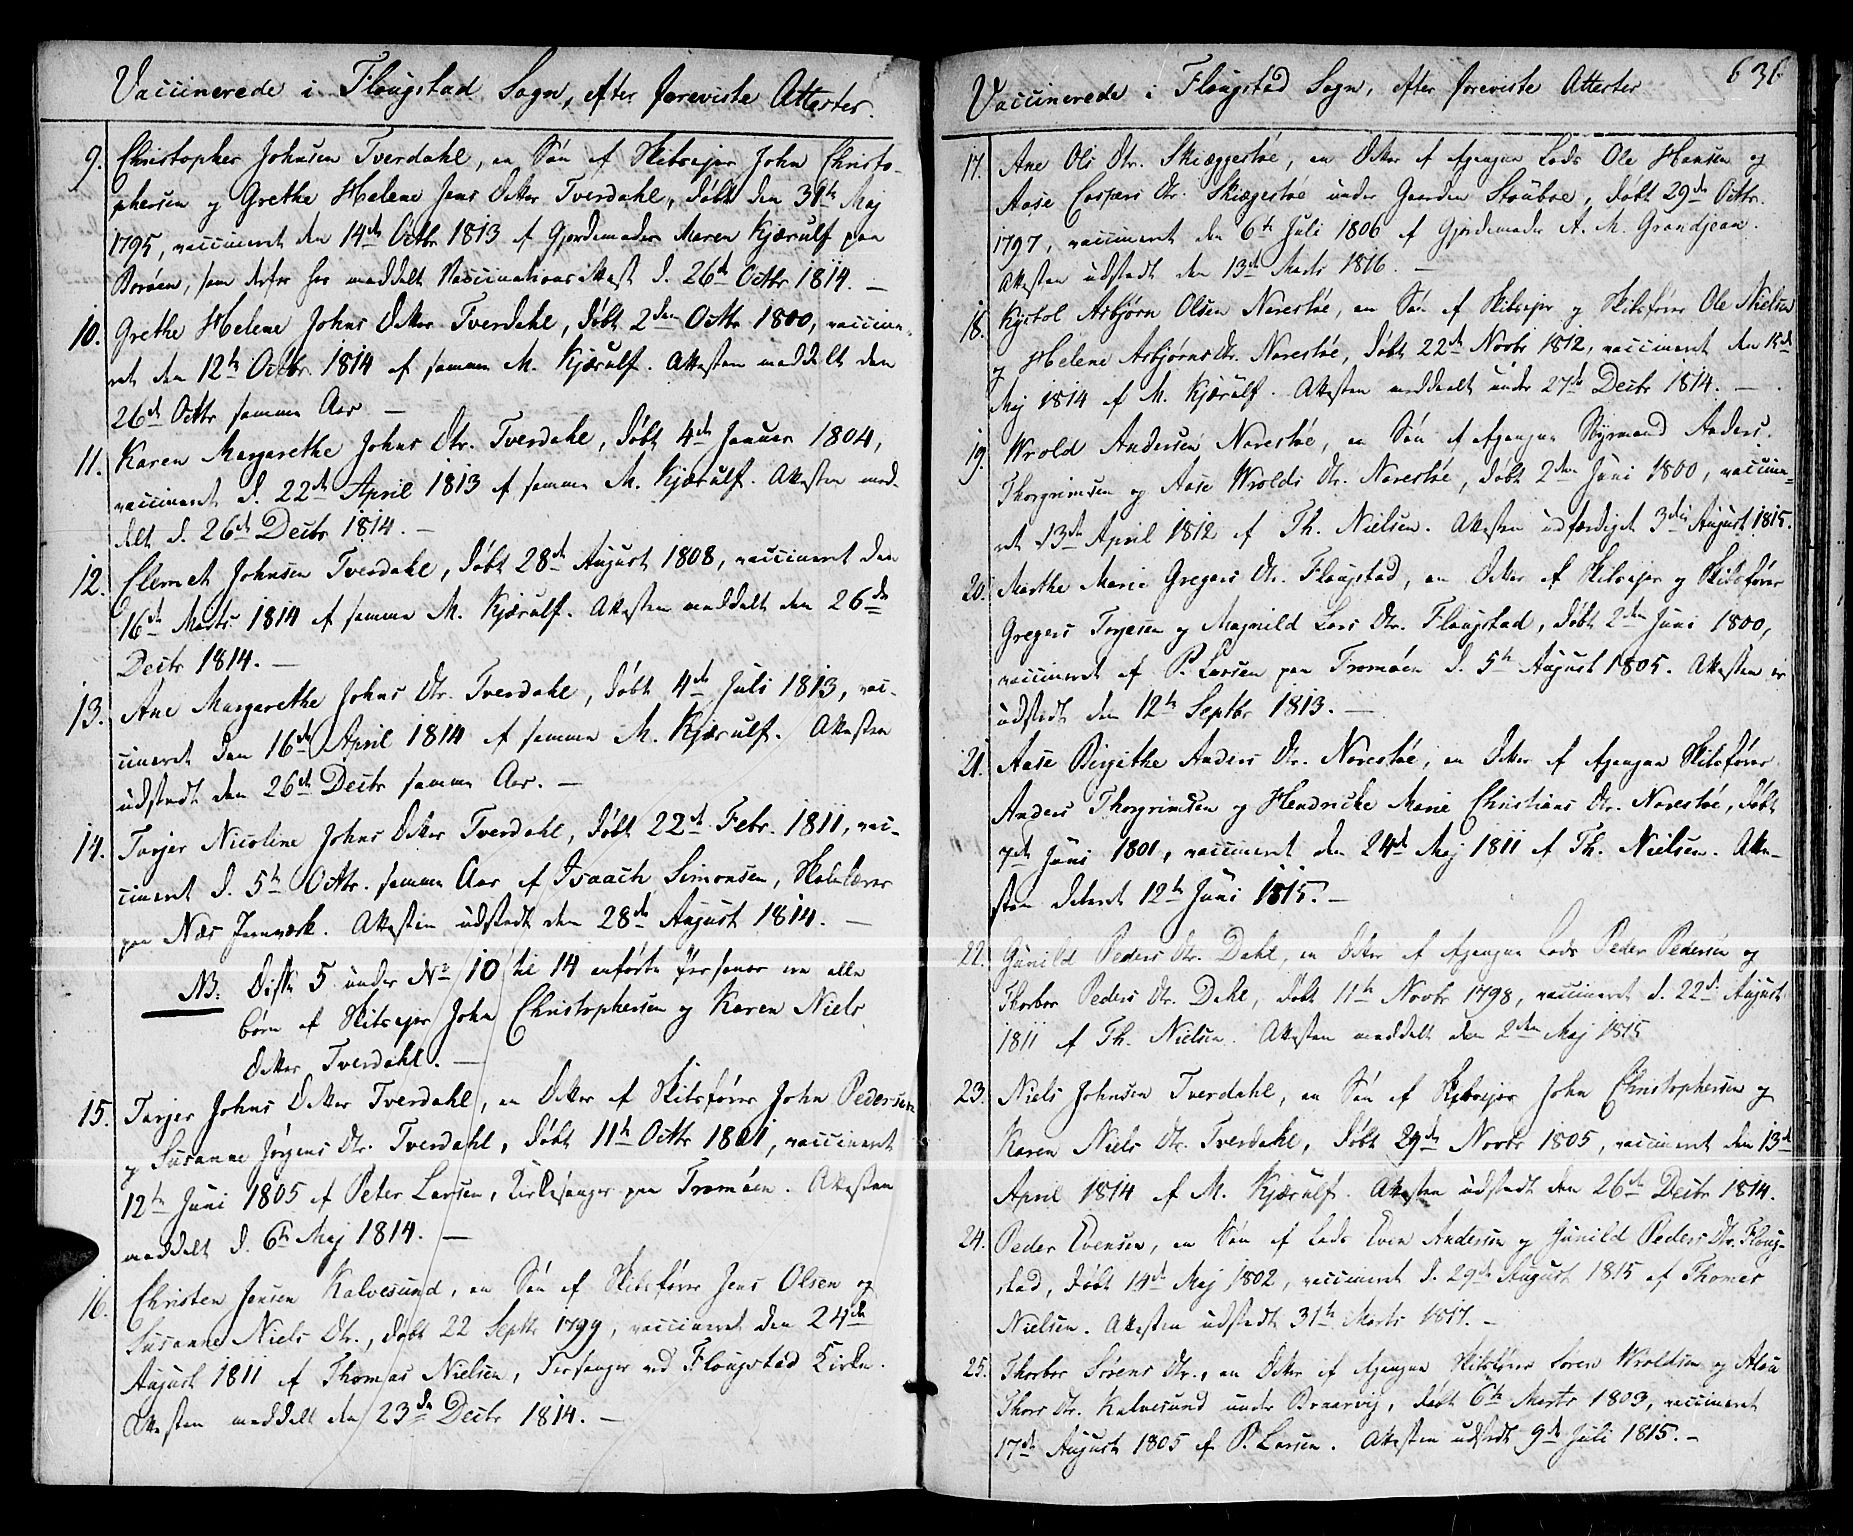 Vaccinerede i Flougstad Sogn, efter foreviste Attester.
9. Christopher Johnsen Tverdahl, en Søn af Skibsejer John Christo-
phersen og Grethe Helene Jens Datter Tverdahl, døbt den 31te Maj
1795, vaccineret den 14de Octbr 1813 af Gjordemoder Maren Kjærulf paa
Borøen, som derfor har meddelt Vaccinations Attest d. 26de Octbr 1814. —
10. Grethe Helene Johns Datter Tverdahl, døbt 2den Octbr 1800, vaccine-
ret den 12te Octbr. 1814 af samme M. Kjærulf. Attesten meddelt den
26de Octbr samme Aar —
11. Karen Margarethe Johns Dtr. Tverdahl, døbt 4de Januar 1804,
vaccineret d. 22de April 1813 af samme M. Kjærulf. Attesten med-
delt d. 26de Decbr 1814. —
12. Clemet Johnsen Tverdahl, døbt 28de August 1808, vaccineret den
16de Marts 1814 af samme M. Kjærulf. Attesten meddelt den 26de
Decbr 1814. —
13. Ane Margarethe Johns Dtr. Tverdahl, døbt 4de Juli 1813, vac-
cineret den 16de April 1814 af samme M. Kjærulf. Attesten
udstedt den 26de Decbr samme Aar. —
14. Tarjer Nicoline Johns Datter Tverdahl, døbt 22de Febr. 1811, vac-
cineret d. 5te Octbr. samme Aar af Isaach Simonsen, Skolelærer
paa Næs Jernværk. Attesten udstedt den 28de August 1814. —
NB: Disse 5 under No 10 til 14 anførte Personer ere alle
børn af Skibsejer John Christophersen og Karen Niels
Datter Tverdahl. —
15. Tarjer Johns Datter Tverdahl, en Datter af Skibsfører John Pedersen
og Susanne Jørgens Dtr. Tverdahl, døbt 11te Octbr 1801, vaccineret
12te Juni 1805 af Peter Larsen, Kirkesanger paa Tromøen. Attesten
meddelt d. 6te Maj 1814. —
16. Christen Jensen Kalvesund, en Søn af Skibsfører Jens Olsen og
Susanne Niels Dtr., døbt 22 Septbr 1799, vaccineret den 24de
August 1811 af Thomas Nielsen, Forsanger ved Flougstad Kirke.
Attesten meddelt den 23de Decbr 1814. —
Vaccinerede i Flougstad Sogn, efter foreviste Attester
636
17. Ane Ols Dtr. Skiæggestøe, en Datter af afgangne Lods Ole Hansen og
Aase Caspers Dtr. Skiægestøe under Gaarden Stoubøe, døbt 29de Octbr.
1797, vaccineret den 6te Juli 1806 af Gjordemoder A. M. Grandjean.
Attesten udstedt den 13de Marts 1816. —
18. Kystol Asbjørn Olsen Narestøe, en Søn af Skibsejer og Skibsfører Ole Nielsen
og Helene Asbjørns Dtr. Narestøe, døbt 22de Novbr 1812, vaccineret den
Maj 1814 af M. Kjærulf. Attesten meddeelt under 27de Decbr 1814. —
19. Wrold Andersen Narestøe, en Søn af afgangne Styrmand Anders
Thorgrimsen og Aase Wrolds Dtr. Narestøe, døbt 2den Juni 1800, vaccine-
ret 13de April 1812 af Th. Nielsen. Attesten udfærdiget 3die August 1815.
20. Marthe Marie Gregers Dtr. Flougstad, en Datter af Skibsejer og Skibsfører
Gregers Terjesen og Magnild Lars Dtr. Flougstad, døbt 2den Juni 1800,
vaccineret af P. Larsen paa Tromøen d. 5te August 1805. Attesten er
udstedt den 12te Septbr 1813. —
21. Aase Birgithe Anders Dtr. Narestøe, en Datter af afgangne Skibsfører
Anders Thorgrimsen og Hendricke Marie Christians Dtr. Narestøe, døbt
7de Juni 1801, vaccineret den 24de Maj 1811 af Th. Nielsen. Atte-
sten dateret 12te Juni 1815. —
22. Gunild Peders Dtr. Dahl, en Datter af afgangne Lods Peder Pedersen og
Thorbor Peders Dtr. Dahl, døbt 11te Novbr 1798, vaccineret d. 22de August
1811 af Th. Nielsen. Attesten meddelt den 2den Maj 1815
23. Niels Johnsen Tverdahl, en Søn af Skibsejer John Christophersen og
Karen Niels Dtr. Tverdahl, døbt 29de Novbr 1805, vaccineret den 13de
April 1814 af M. Kjærulf. Attesten udstedt den 26de Decbr 1814.
24. Peder Evensen, en Søn af Lods Even Andersen og Gunild Peders Dtr. Floug-
stad, døbt 14de Maj 1802, vaccineret d. 29de August 1815 af Thomas
Nielsen. Attesten udstedt 31te Marts 1817. —
25. Thorbor Sørens Dtr., en Datter af afgangne Skibsfører Søren Wroldsen og
Thors Dtr. Kalvesund under Braarvig, døbt 6te Marts 1803, vaccineret
17de August 1805 af P. Larsen. Attesten udstedt 9de Juli 1815. —